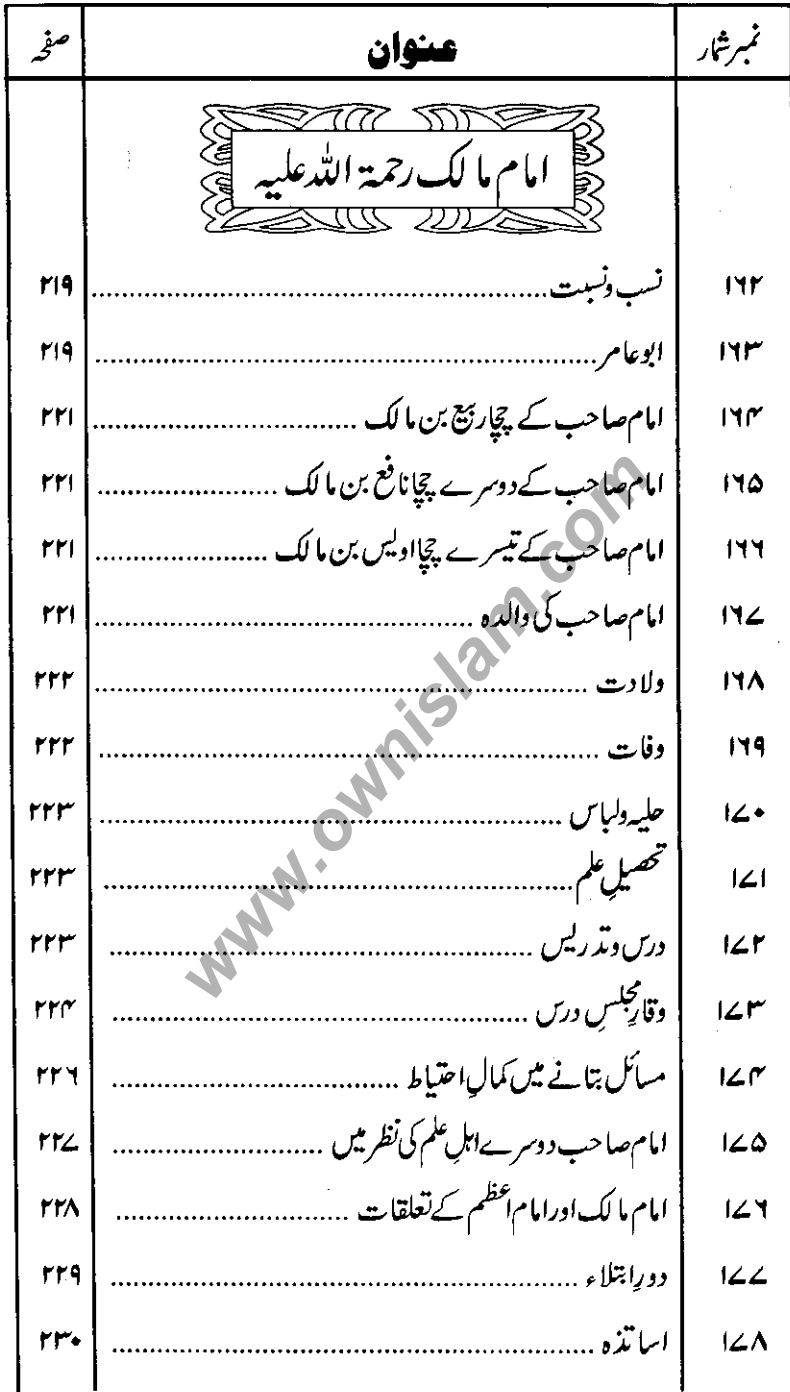 نمبر شمار عنوان صفحہ
امام مالک رحمۃ اللہ علیہ
۱۶۲ نسب و نسبت ................ ۲۱۹
۱۶۳ ابو عامر ................ ۲۱۹
۱۶۴ امام صاحب کے چچا ربیع بن مالک ................ ۲۲۱
۱۶۵ امام صاحب کے دوسرے چچا نافع بن مالک ................ ۲۲۱
۱۶۶ امام صاحب کے تیسرے چچا اویس بن مالک ................ ۲۲۱
۱۶۷ امام صاحب کی والدہ ................ ۲۲۱
۱۶۸ ولادت ................ ۲۲۲
۱۶۹ وفات ................ ۲۲۲
۱۷۰ حلیہ ولباس ................ ۲۲۳
۱۷۱ تحصیلِ علم ................ ۲۲۳
۱۷۲ درس وتدریس ................ ۲۲۳
۱۷۳ وقارِ مجلسِ درس ................ ۲۲۴
۱۷۴ مسائل بتانے میں کمالِ احتیاط ................ ۲۲۶
۱۷۵ امام صاحب دوسرے اہلِ علم کی نظر میں ................ ۲۲۷
۱۷۶ امام مالک اور امام اعظم کے تعلقات ................ ۲۲۸
۱۷۷ دورِ ابتلاء ................ ۲۲۹
۱۷۸ اساتذہ ................ ۲۳۰
www.ownislam.com